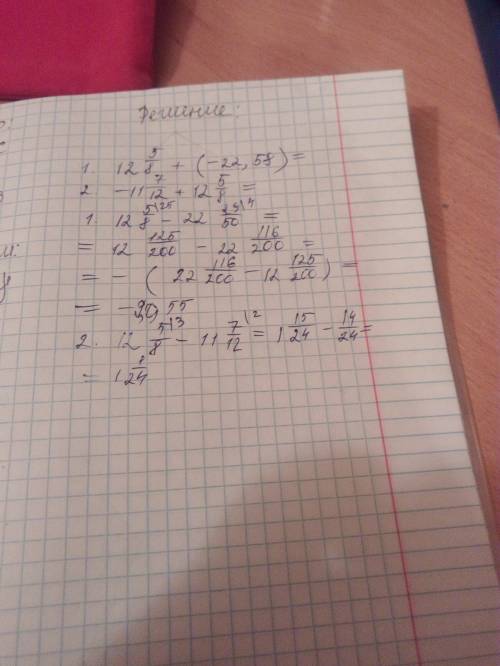 Решение:
1. 12 5/8 + (-22,58) =
2 -11 7/12 + 12 5/8 =
1. 12 5/8 \25 - 22 29/50 \4 =
= 12 125/200 - 22 116/200 =
= - ( 22 116/200 - 12 125/200 ) =
2. 12 5/8 \3 - 11 7/12 \2 = 1 15/24 - 14/24 =
= 1 1/24